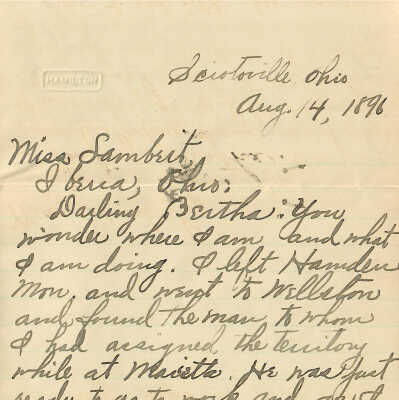 HAMILTON
Sciotoville Ohio
Aug. 14, 1896
Miss Lambert,
Iberia, Ohio:
Darling Bertha: You
wonder where I am and what
I am doing. I left Hamden
Mon. and went to Wellston
and found the man to whom
I had assigned the territory
while at Marietta. He was just
ready to go to work and